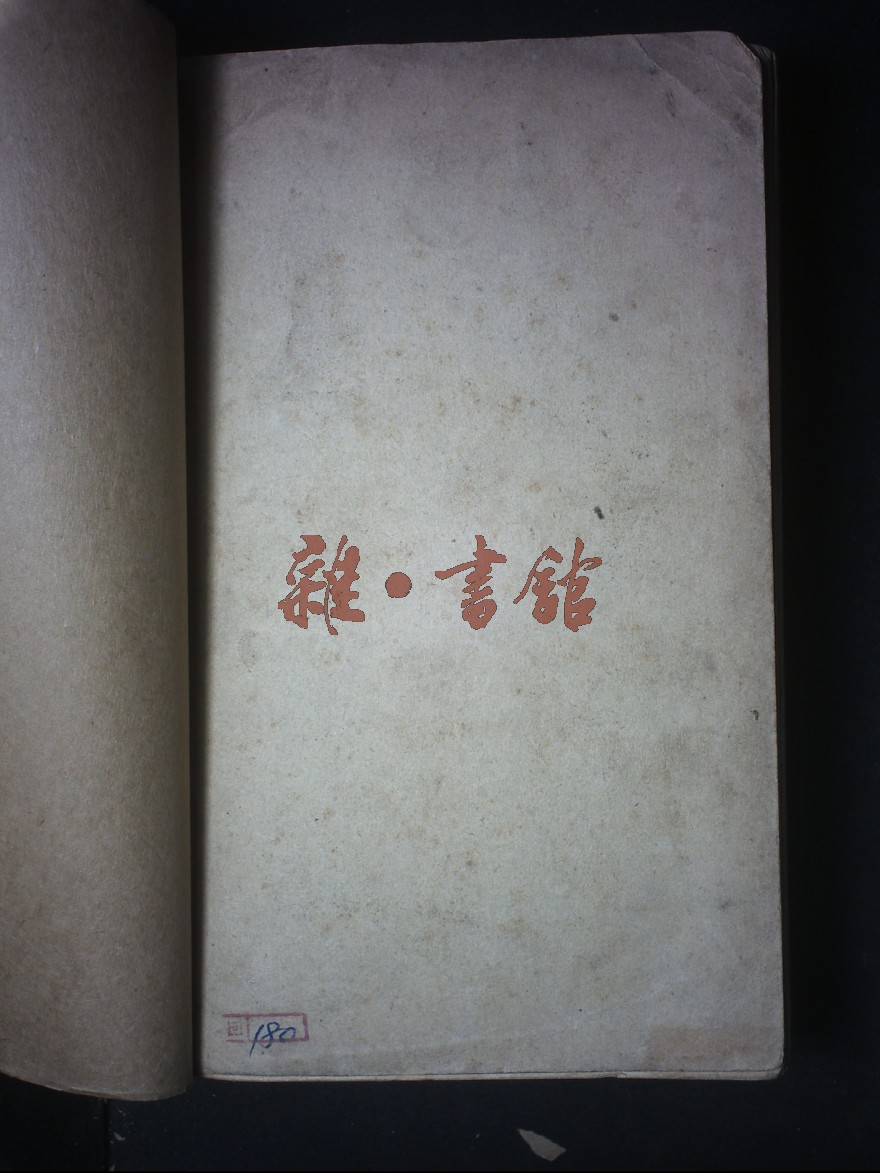 雜·書館
180